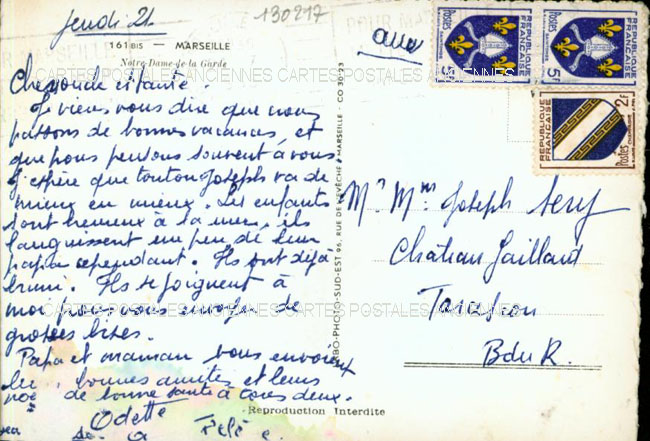 jeudi 21
130217
161 BIS — MARSEILLE
Notre-Dame de la Garde
CARTES POSTALES ANCIENNES CARTES POSTALES ANCIENNES
Je viens vous dire que nous
passons de bonnes vacances, et
que nous pensons souvent à vous
J'espère que tonton Joseph va de
mieux en mieux. Les enfants
sont heureux à la mer, ils
languissent un peu de leur
papa cependant. Ils ont déjà
bruni. Ils se joignent à
moi pour vous envoyer de
grosses bises.
Papa et maman vous envoient
bonnes amitiés et leurs
de bonne santé à tous deux.
Odette
CARTES POSTALES ANCIENNES CARTES POSTALES ANCIENNES
PHOTO-SUD-EST 96, RUE DE L'EVÊCHÉ - MARSEILLE - CO 30-23
Reproduction Interdite
POSTES
5F
REPUBLIQUE FRANÇAISE
POSTES
5F
REPUBLIQUE FRANÇAISE
REPUBLIQUE FRANÇAISE
2F
POSTES
Mr Mme Joseph
Château Gaillard
Tarascon
B du R.